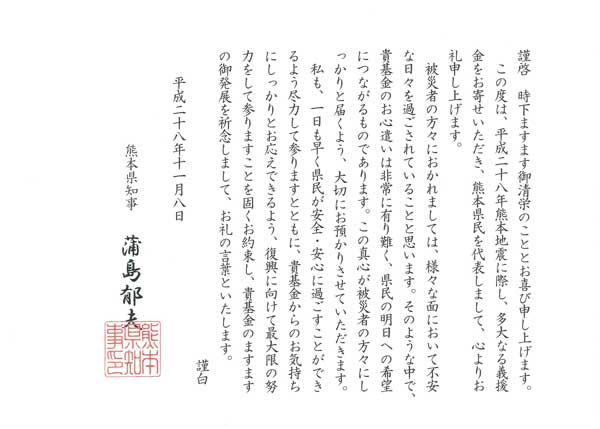 謹啓　時下ますます御清栄のこととお喜び申し上げます。
この度は、平成二十八年熊本地震に際し、多大なる義援
金をお寄せいただき、熊本県民を代表しまして、心よりお
礼申し上げます。
被災者の方々におかれましては、様々な面において不安
な日々を過ごされていることと思います。そのような中で、
貴基金のお心遣いは非常に有り難く、県民の明日への希望
につながるものであります。この真心が被災者の方々にし
っかりと届くよう、大切にお預かりさせていただきます。
私も、一日も早く県民が安全・安心に過ごすことができ
るよう尽力して参りますとともに、貴基金からのお気持ち
にしっかりとお応えできるよう、復興に向けて最大限の努
力をして参りますことを固くお約束し、貴基金のますます
の御発展を祈念しまして、お礼の言葉といたします。
謹白
平成二十八年十一月八日
熊本県知事　蒲島郁夫
熊本
県知
事印